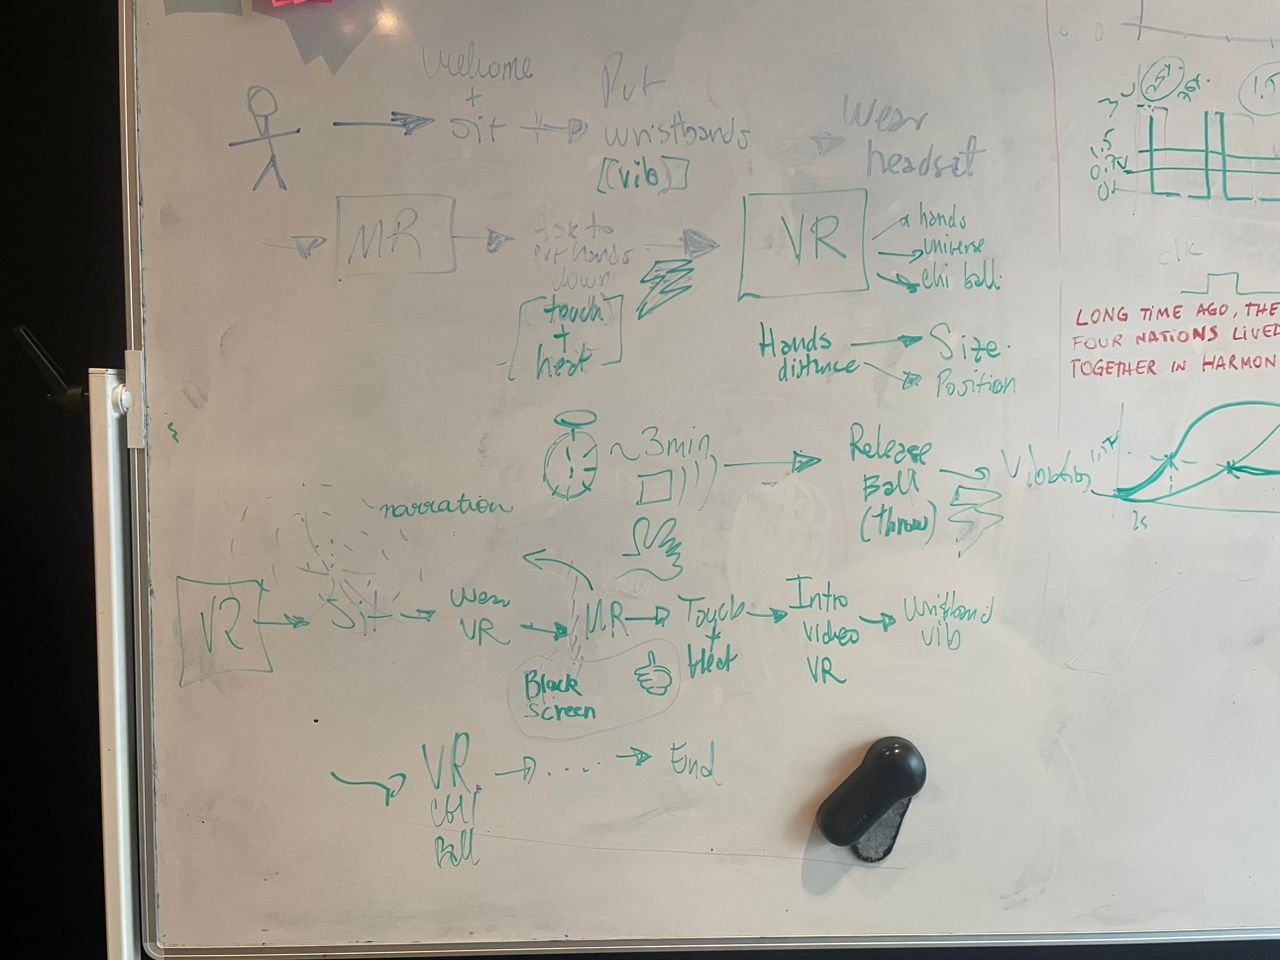 Welcome
+
Sit
Put
wristbands
[(vib)]
Wear
headset
MR
Ask to
put hands
down
touch
+
heat
VR
hands
universe
chi ball
Hands
distance
Size.
Position
~3min
Release
Ball
(throw)
narration
VR
Sit
Wear
VR
MR
Black
screen
Touch
+
Heat
Intro
video
VR
Wristband
vib
VR
Ball
....
End
1.5
3
1.5
0
clk
LONG TIME AGO, THE
FOUR NATIONS LIVED
TOGETHER IN HARMON
2s